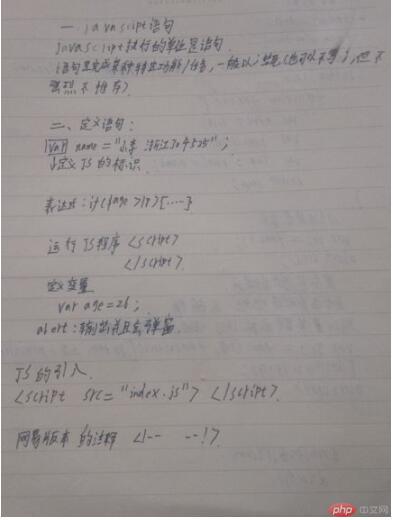 一. javascript语句
javascript执行的单位是语句.
语句是完成某种特定功能/任务, 一般以;结尾(也可以不写;, 但不
强烈不推荐)
二、定义语句:
var name = "
定义JS的标识.
表达式: if(age>18){....}
运行JS程序 <script>
</script>.
定义变量
var age=26;
alert: 输出并且会弹窗.
JS的引入.
<script src="index.js"> </script>.
网易版本的注释 <!-- --!>.
php 中文网